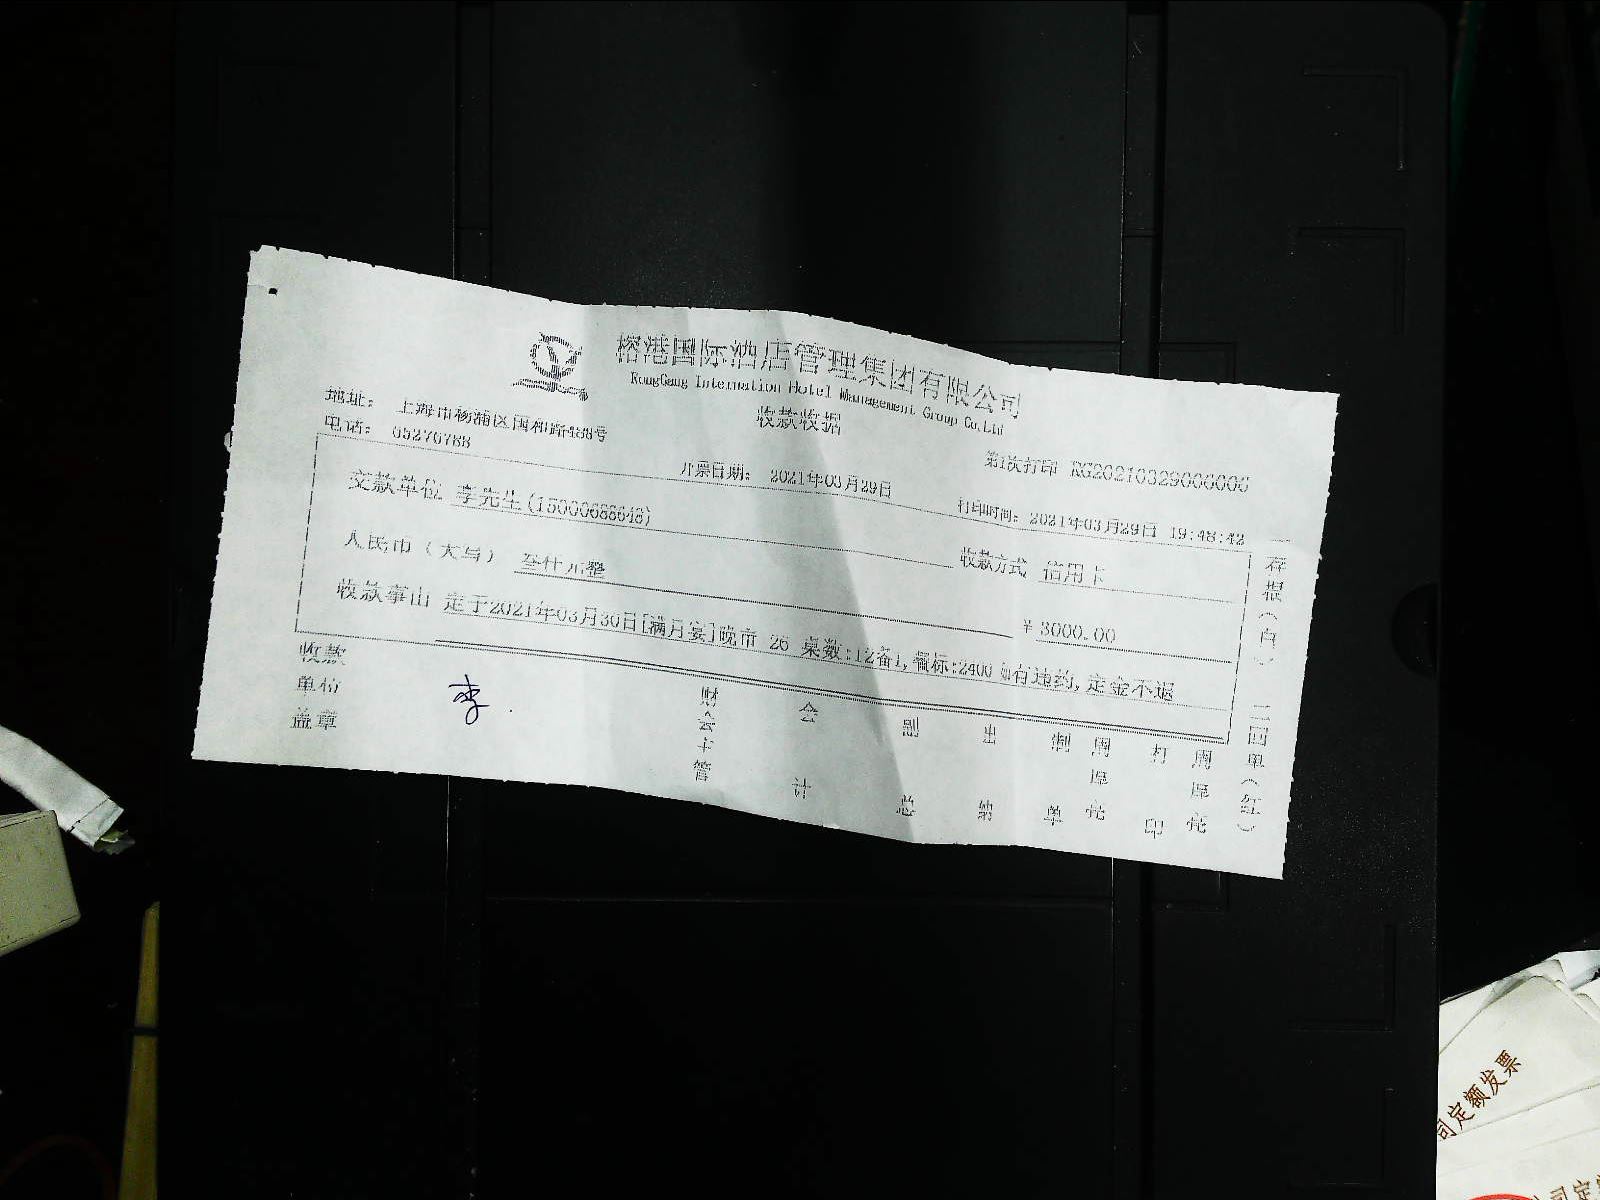 榕港国际酒店管理集团有限公司
RongGang Internation Hotel Management Group Co,Ltd
收款收据
地址： 上海市杨浦区国和路488号
电话： 65270788
第1次打印 RG20210329000006
开票日期： 2021年03月29日
打印时间： 2021年03月29日 19:48:42
交款单位 李先生(15000688648)
收款方式 信用卡
人民币（大写） 叁仟元整
￥3000.00
收款事由 定于2021年03月30日[满月宴]晚市 26 桌数:12备1,餐标:2400 如有违约,定金不退
收款
单位
盖章
李
财会主管
会计
出纳
制单
周厚亮
打印
周厚亮
一存根(白)
二回单(红)
同定额发票